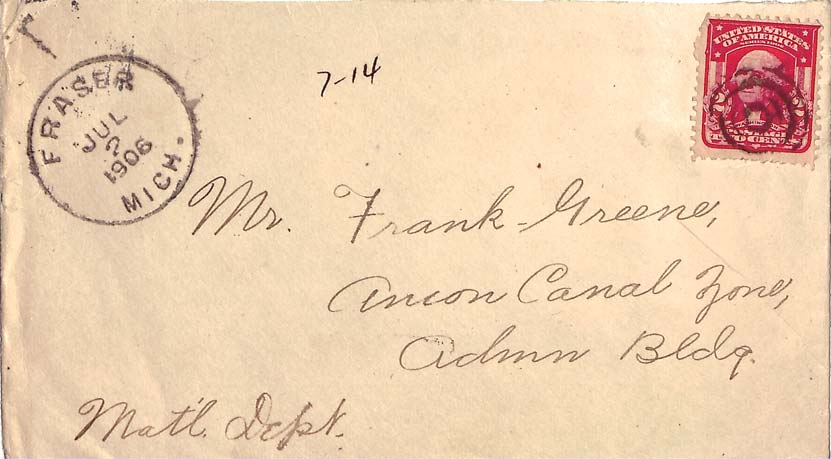 FRASER
JUL
2
1906
MICH.
7-14
UNITED STATES
OF AMERICA
SERIES 1902
TWO CENTS
Mr. Frank Greene,
Ancon Canal Zone,
Admn Bldg.
Mat'l. Dept.